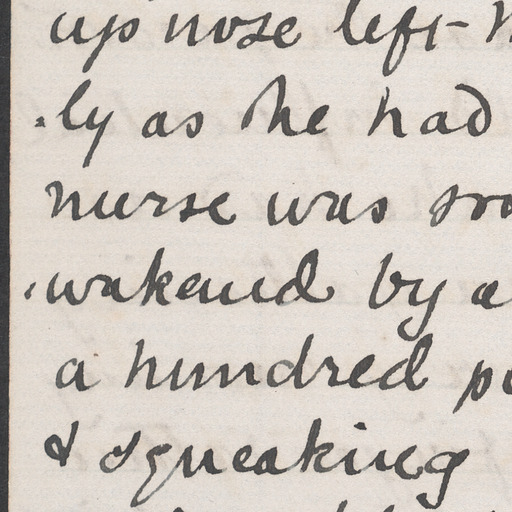 up nose left
ly as he had
nurse was
wakened by a
a hundred
& squeaking